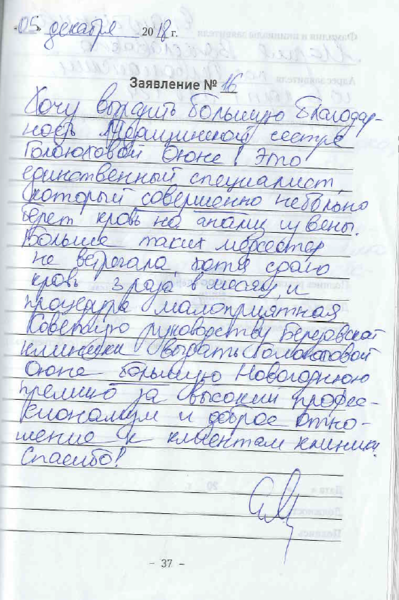 05 декабря 2018 г.
Заявление № 16
Хочу выразить большую благодар-
ность Медицинской сестре
Оюне! Это
единственный специалист,
который совершенно небольно
берет кровь на анализ из вены.
Больше таких медсестер
не встречала, хотя сдаю
кровь 3 раза в месяц, и
процедура малоприятная
Советую руководству
клиники выдать Голоюховой
Оюне большую Новогоднюю
премию за высокий профес-
сионализм и доброе отно-
шение к клиентам клиники.
Спасибо!
- 37 -